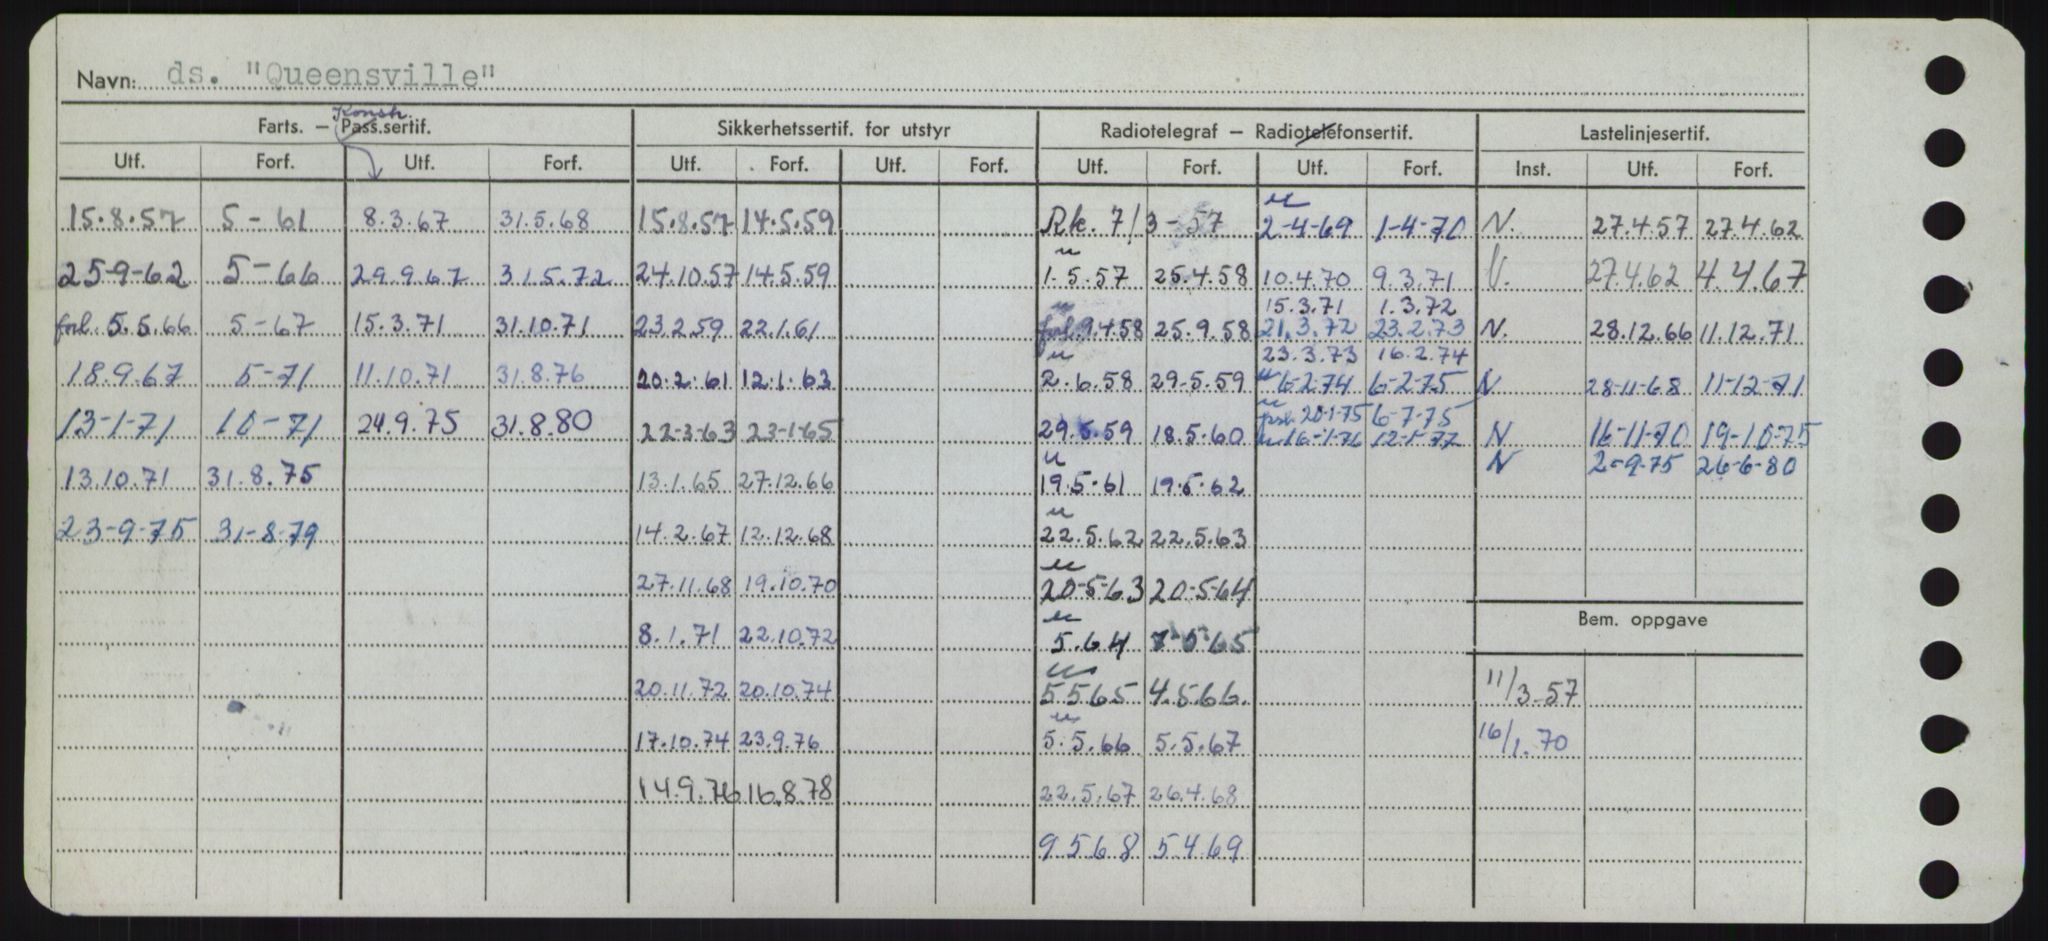 Navn: ds. "Queensville"
Konstr.
Farts. — Pass.sertif. Sikkerhetssertif. for utstyr Radiotelegraf — Radiotelefonsertif. Lastelinjesertif.
Utf. Forf. Utf. Forf. Utf. Forf. Utf. Forf. Utf. Forf. Utf. Forf. Inst. Utf. Forf.
15.8.57 5-61 8.3.67 31.5.68 15.8.57 14.5.59 Rk. 7/3-57 2-4-69 1-4-70 N. 27.4.57 27.4.62
25-9-62 5-66 29.9.67 31.5.72 24.10.57 14.5.59 1.5.57 25.4.58 10.4.70 9.3.71 V. 27.4.62 4.4.67
15.3.71 1.3.72
forl. 5.5.66 5-67 15.3.71 31.10.71 23.2.59 22.1.61 forl. 9.4.58 25.9.58 21.3.72 23.2.73 N. 28.12.66 11.12.71
23.3.73 16.2.74
18.9.67 5-71 11.10.71 31.8.76 20.2.61 12.1.63 2.6.58 29.5.59 6-2-74 6-2-75 N 28-11-68 11-12-71
20-1-75 6-7-75
13-1-71 10-71 24.9.75 31.8.80 22-3-63 23-1-65 29.5.59 18.5.60 16-1-76 12-1-77 N 16-11-70 19-10-75
N 2-9-75 26-6-80
13.10.71 31.8.75 13.1.65 27.12.66 19.5.61 19.5.62
23-9-75 31-8-79 14.2.67 12.12.68 22.5.62 22.5.63
27.11.68 19.10.70 20-5-63 20-5-64
Bem. oppgave
8.1.71 22.10.72 5.64 5 65
20.11.72 20.10.74 5.5.65 4.5.66. 11/3-57
17.10.74 23.9.76 5.5.66 5.5.67 16/1.70
14.9.76 16.8.78 22.5.67 26.4.68
9568 5469